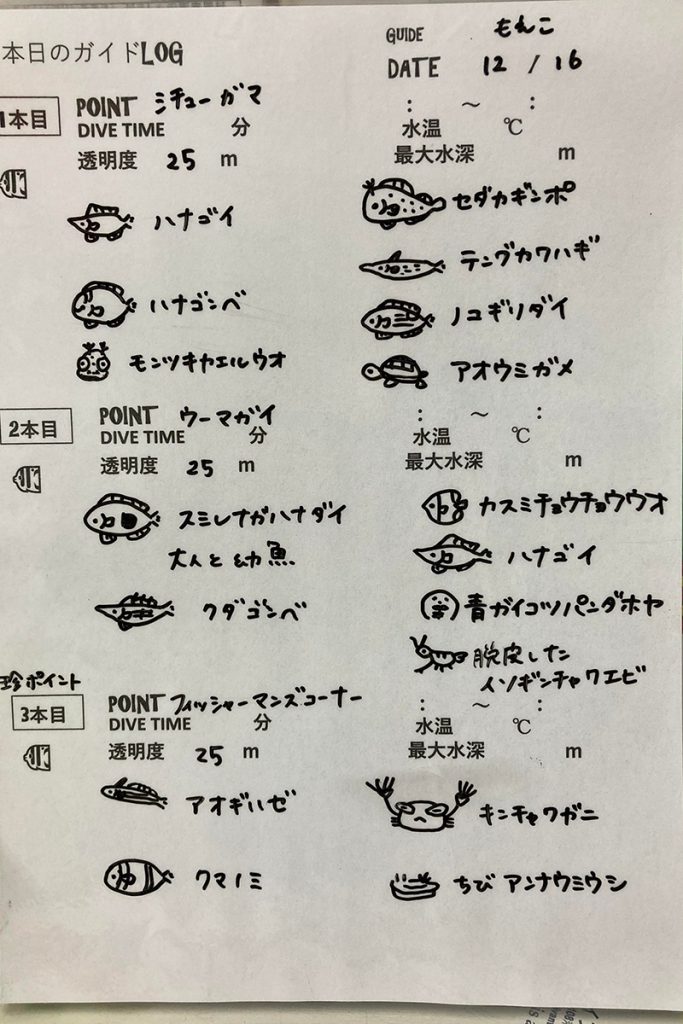 本日のガイドLOG
GUIDE もんこ
DATE 12 / 16
1本目
POINT シチューガマ
: ～ :
DIVE TIME 分
水温 ℃
透明度 25 m
最大水深 m
ハナゴイ
セダカギンポ
テングカワハギ
ハナゴンベ
ノコギリダイ
モンツキカエルウオ
アオウミガメ
2本目
POINT ウーマガイ
: ～ :
DIVE TIME 分
水温 ℃
透明度 25 m
最大水深 m
スミレナガハナダイ
大人と幼魚
カスミチョウチョウウオ
ハナゴイ
クダゴンベ
青ガイコツパンダホヤ
脱皮した
イソギンチャクエビ
珍ポイント
3本目
POINT フィッシャーマンズコーナー
: ～ :
DIVE TIME 分
水温 ℃
透明度 25 m
最大水深 m
アオギハゼ
キンチャクガニ
クマノミ
ちび アンナウミウシ